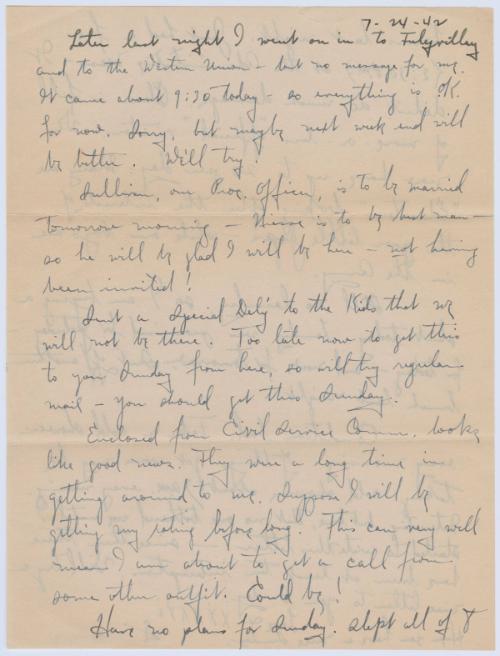 7-24-42
Later last night I went on in to
and to the Western Union - but no message for me.
It came about 9:30 today - so everything is OK.
for now. Sorry, but maybe next week end will
be better. We'll try.
Sullivan, our Proc. Officer, is to be married
tomorrow morning - is to be best man -
so he will be glad I will be here - not having
been invited!
Sent a Special Del'y to the Kids that we
will not be there. Too late now to get this
to you Sunday from here, so will try regular
mail - you should get this Sunday.
Enclosed from Civil Service Comm. looks
like good news. They were a long time in
getting around to me. Suppose I will be
getting my rating before long. This can very well
mean I am about to get a call from
some other outfit. Could be!
Have no plans for Sunday. Slept all of 8